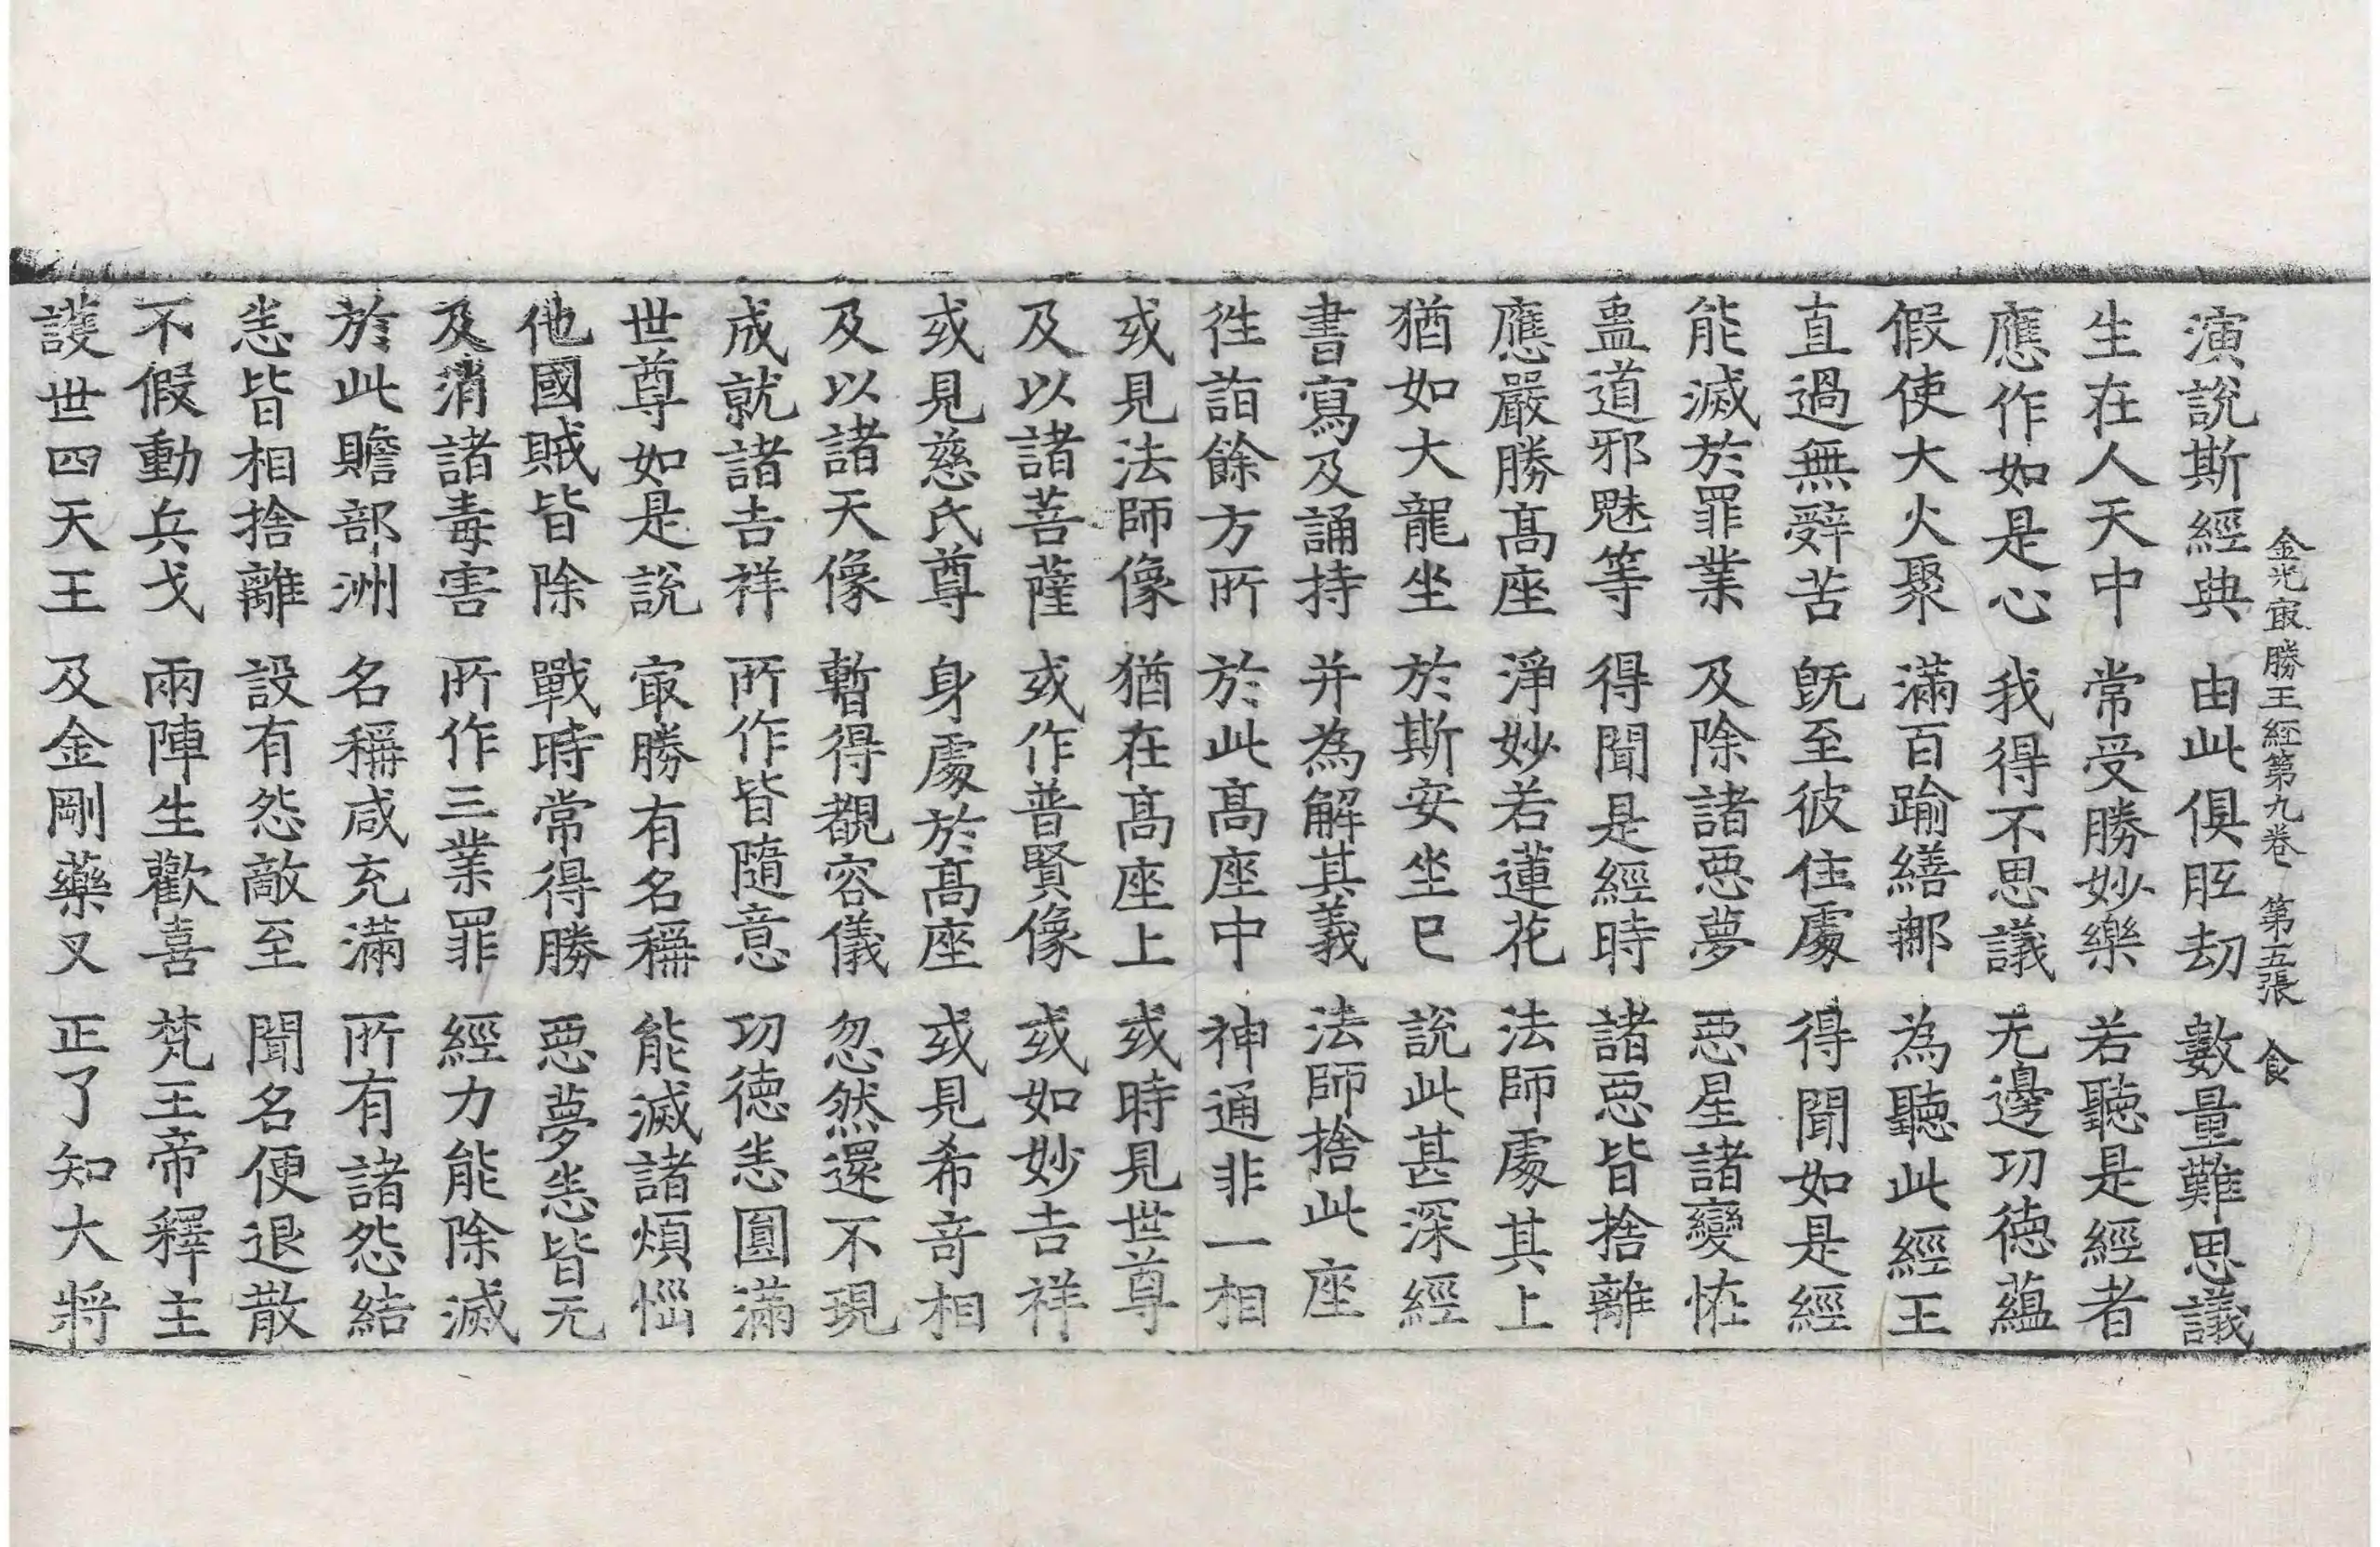 金光㝡勝王經第九卷　第五張　食
演說斯經典　由此俱胝劫　數量難思議
生在人天中　常受勝妙樂　若聽是經者
應作如是心　我得不思議　无邊功德蘊
假使大火聚　滿百踰繕那　為聽此經王
直過無辭苦　旣至彼住處　得聞如是經
能滅於罪業　及除諸惡夢　惡星諸變恠
蠱道邪魅等　得聞是經時　諸惡皆捨離
應嚴勝髙座　淨妙若蓮花　法師處其上
猶如大龍坐　於斯安坐已　說此甚深經
書寫及誦持　并為解其義　法師捨此座
徃詣餘方所　於此髙座中　神通非一相
或見法師像　猶在髙座上　或時見世尊
及以諸菩薩　或作普賢像　或如妙吉祥
或見慈氏尊　身處於髙座　或見希奇相
及以諸天像　暫得覩容儀　忽然還不現
成就諸吉祥　所作皆隨意　功德悉圓滿
世尊如是說　㝡勝有名稱　能滅諸煩惱
他國賊皆除　戰時常得勝　惡夢悉皆无
及消諸毒害　所作三業罪　經力能除滅
於此贍部洲　名稱咸充滿　所有諸怨結
悉皆相捨離　設有怨敵至　聞名便退散
不假動兵戈　兩陣生歡喜　梵王帝釋主
護世四天王　及金剛藥叉　正了知大將